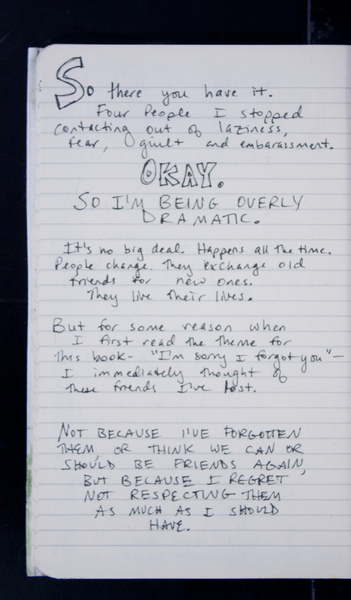 So there you have it.
Four People I stopped
contacting out of laziness,
fear, guilt and embarassment.
OKAY.
SO I'M BEING OVERLY
DRAMATIC.
It's no big deal. Happens all the time.
People change. They exchange old
friends for new ones.
They live their lives.
But for some reason when
I first read the theme for
this book- "I'm sorry I forgot you"-
I immediately thought of
these friends I've lost.
NOT BECAUSE I'VE FORGOTTEN
THEM, OR THINK WE CAN OR
SHOULD BE FRIENDS AGAIN,
BUT BECAUSE I REGRET
NOT RESPECTING THEM
AS MUCH AS I SHOULD
HAVE.